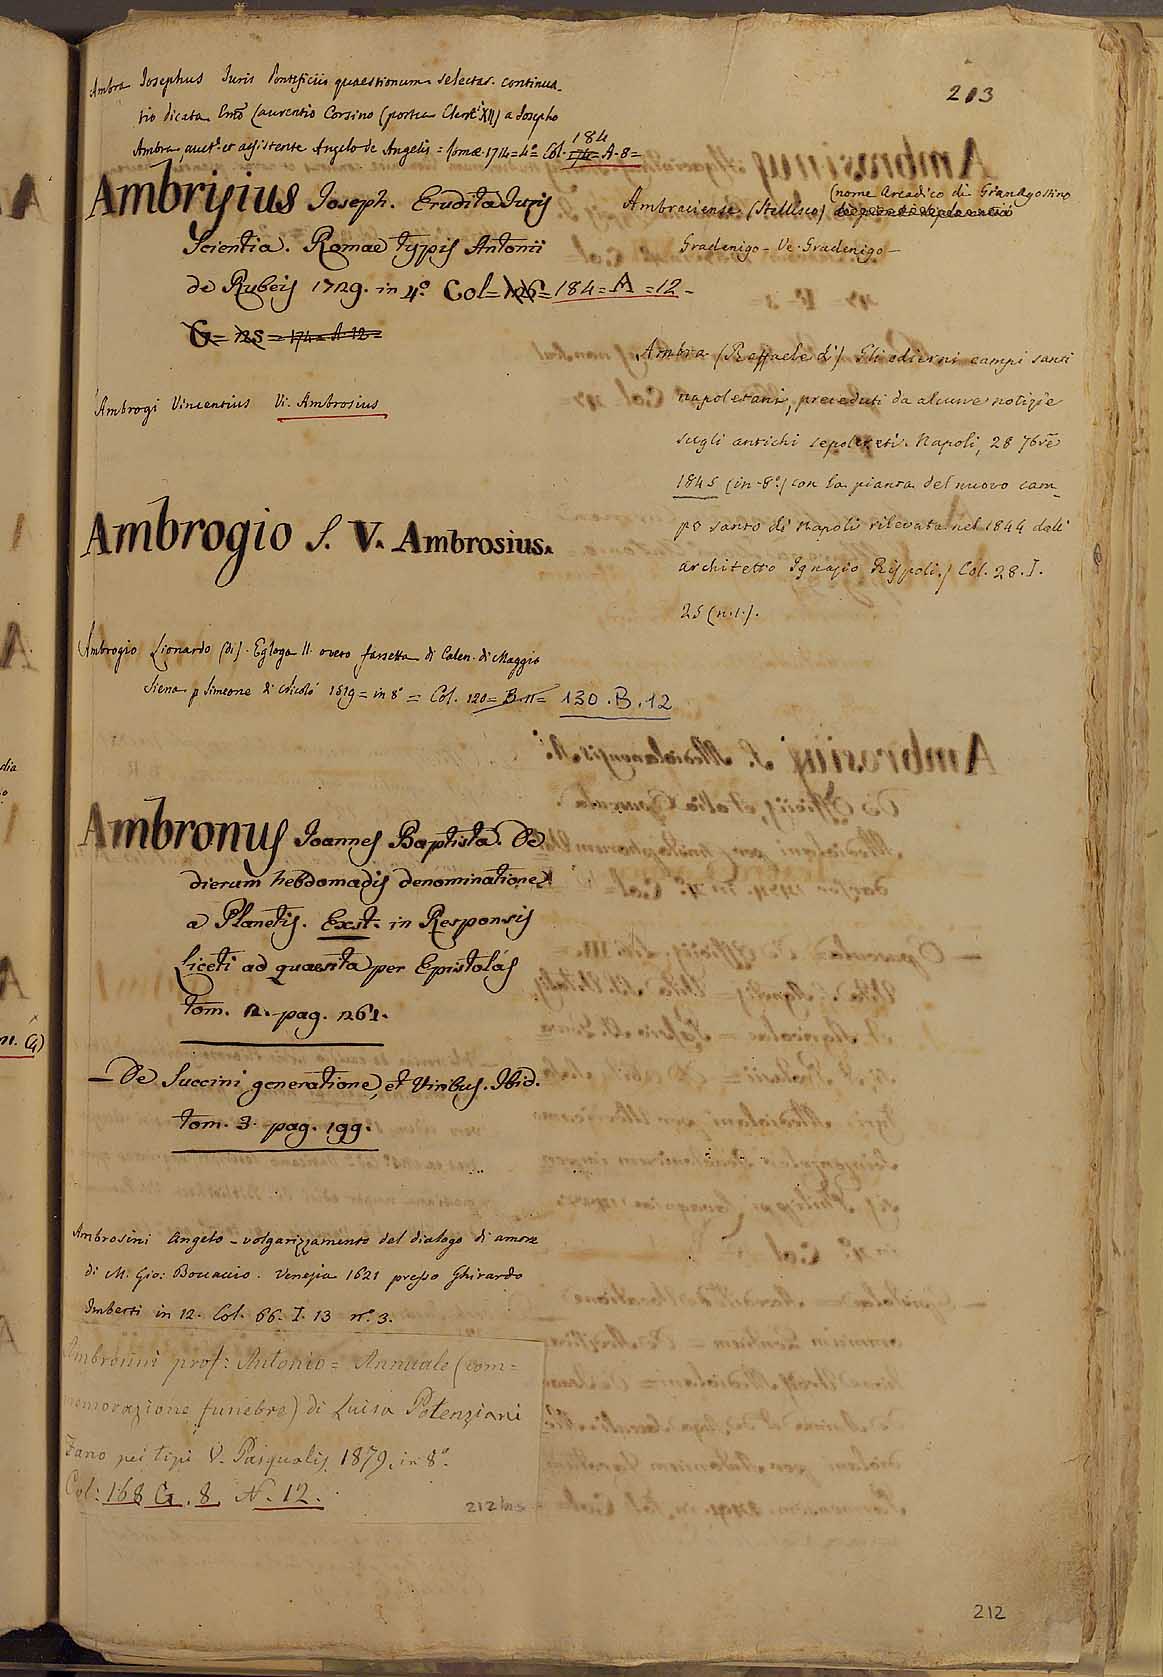 213
Ambra Josephus Juris Pontificii quaestionum selectar. continua-
tio dicata Em̃o Laurentio Corsino (postea Clem̃te XII) a Josepho
184
Ambra auct.e et assistente Angelo de Angelis = Romae 1714 = 4.° = Col. 174 = A. 8 =
Ambrisius Joseph. Erudita Juris
Scientia. Romae typis Antonii
de Rubeis 1729. in 4.° Col = 126 = 184 = A = 12 -
G = 125 = 174 = A. 12 =
Ambrogi Vincentius Vi. Ambrosius
Ambrogio S. V. Ambrosius.
Ambrogio Lionardo (di). Egloga II. overo farsetta di Calen. di Maggio
Siena p Simeone di Nicolò 1519 = in 8° = Col. 120 = B. 11 = 130. B. 12
Ambronus Joannes Baptista. De
dierum hebdomadis denominatione
a Planetis. Exst. in Responsis
Liceti ad quaesita per Epistolas
tom. 2. pag. 261.
— De Succini generatione, et Viribus. Ibid.
tom. 3. pag. 199.
Ambrosini Angelo - volgarizzamento del dialogo di amore
di M. Gio: Boccaccio. Venezia 1621 presso Ghirardo
Imberti in 12. Col. 66. I. 13 n.° 3.
Ambrosini prof: Antonio = Annuale (com=
memorazione funebre) di Luisa Potenziani
Fano pei tipi V. Pasqualis 1879. in 8°.
Col: 168 G. 8. N. 12.
212 bis
(nome Arcadico di GianAgostino
Ambraciense (Stellisco)
Gradenigo - Ve. Gradenigo -
Ambra (Raffaele d') Gli odierni campi santi
napoletani, preceduti da alcune notizie
sugli antichi sepolcreti. Napoli, 28 7bre
1845 (in-8.°) con la pianta del nuovo cam-
po santo di Napoli rilevata nel 1844 dall'
architetto Ignazio Rispoli.) Col. 28. I.
25 (n.1.).
212